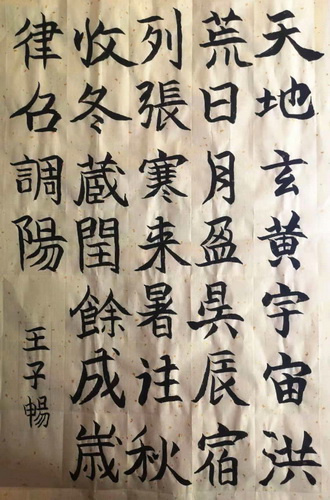 天地玄黄宇宙洪
荒日月盈昃辰宿
列張寒来暑往秋
收冬蔵閏餘成歳
律召調陽
王子暢